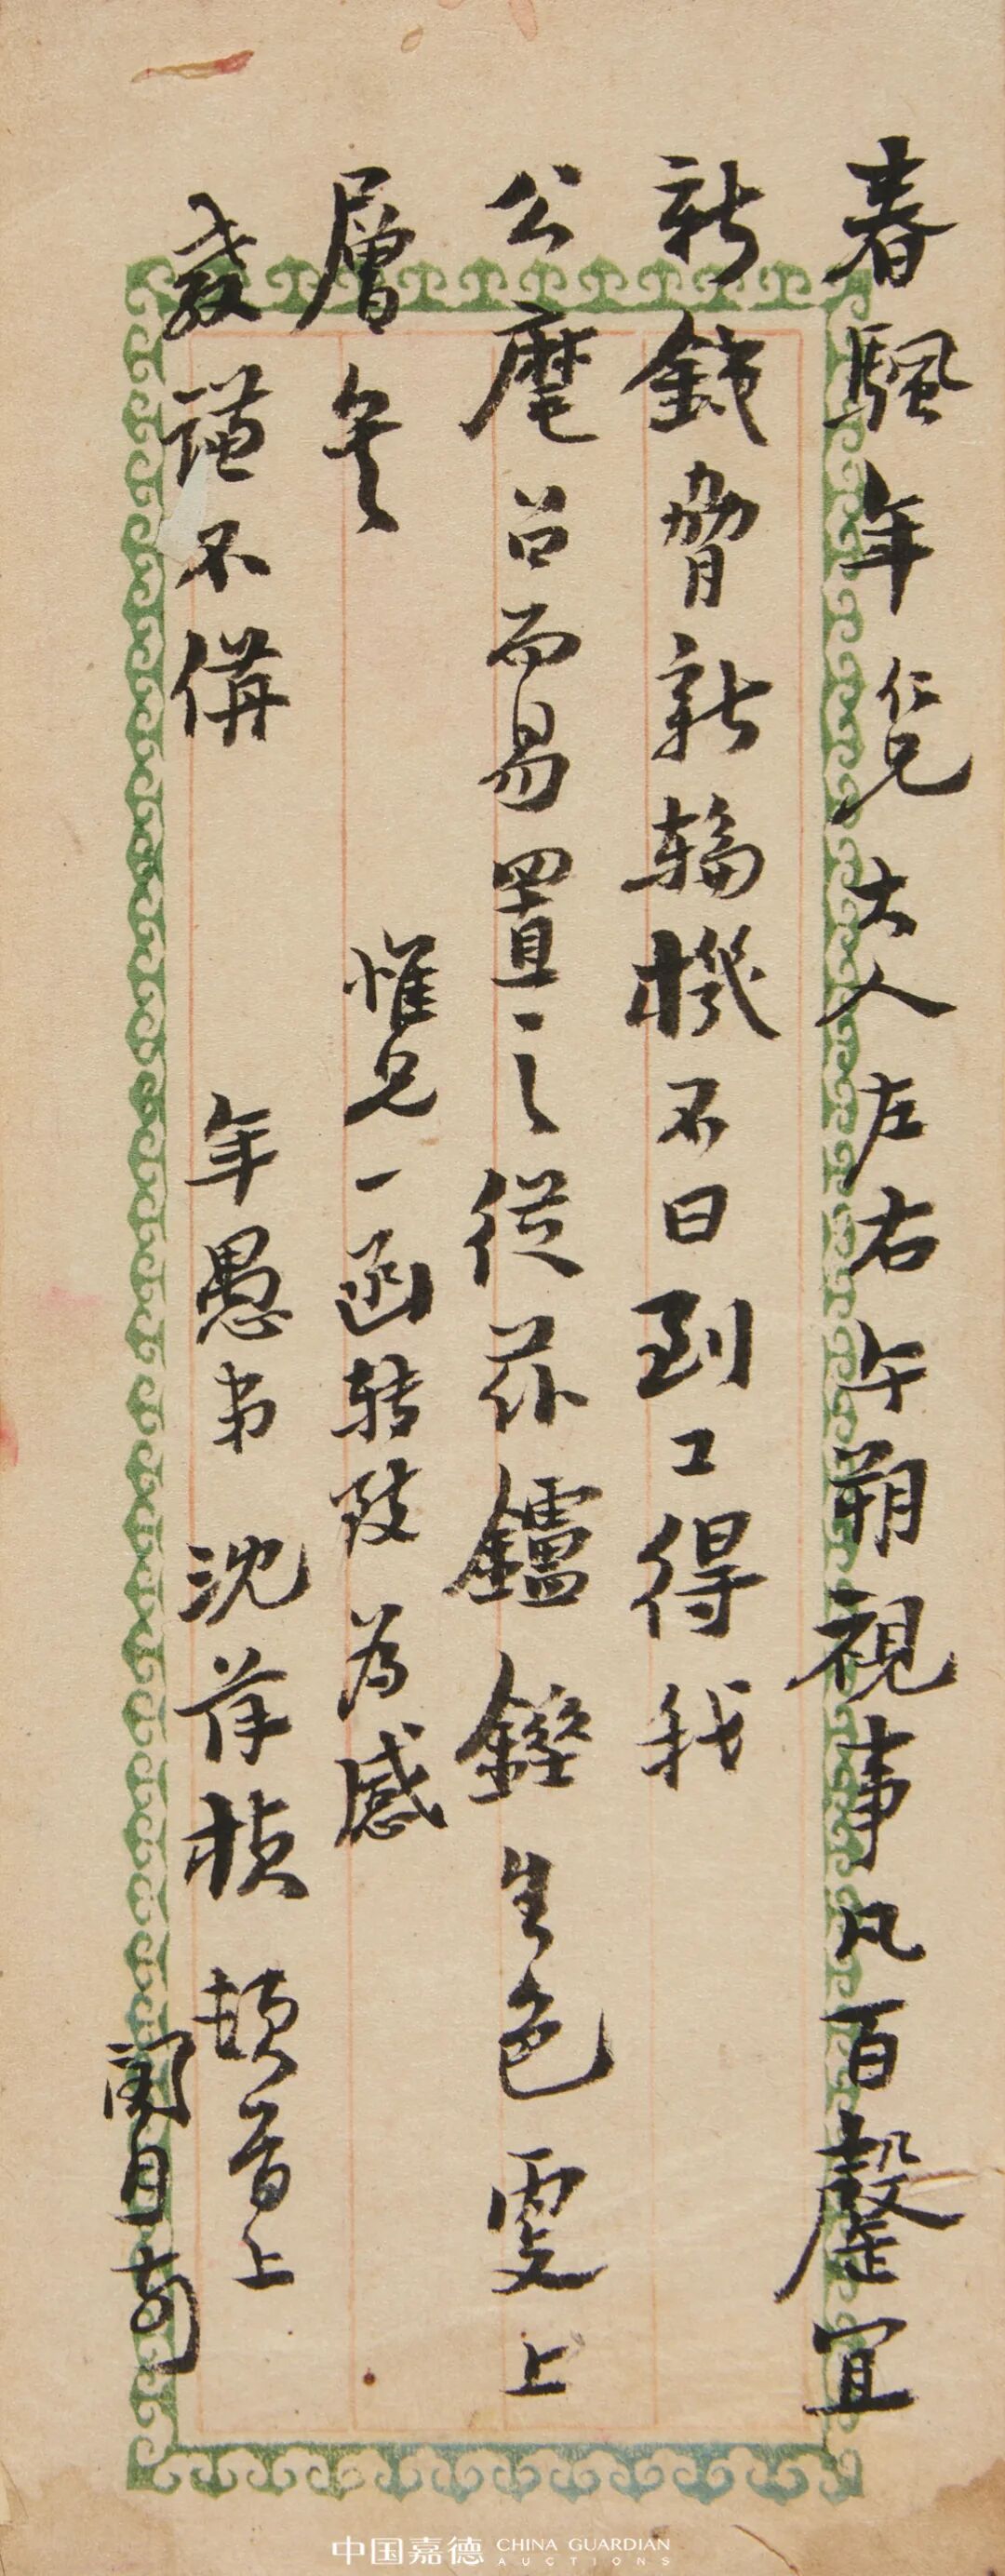 春颿年仁兄大人左右午朔視事凡百罄宜
新錢脅新輪機不日到工得我
公麾召而易置之從茲鑪鎚生色更上
層矣
惟兄一函轉致為感
敬謹不備
年愚弟沈葆楨頓首上
閏月初
中国嘉德 CHINA GUARDIAN AUCTIONS